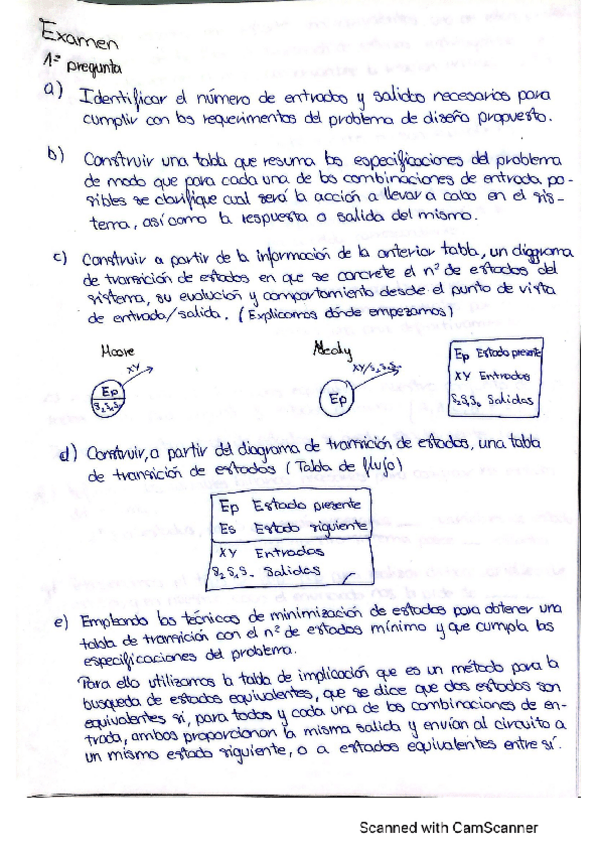 Examen
1ª pregunta
a) Identificar el número de entradas y salidas necesarias para
cumplir con los requerimentos del problema de diseño propuesto.
b) Construir una tabla que resuma las especificaciones del problema
de modo que para cada una de las combinaciones de entrada po-
sibles se clarifique cual será la acción a llevar a cabo en el sis-
tema, así como la respuesta o salida del mismo.
c) Construir a partir de la información de la anterior tabla, un diagrama
de transición de estados en que se concrete el nº de estados del
sistema, su evolución y comportamiento desde el punto de vista
de entrada/salida. (Explicamos dónde empezamos)
Moore
XY
Ep
S₂S₁S₀
Mealy
XY/S₂S₁S₀
Ep
Ep Estado presente
XY Entradas
S₂S₁S₀ Salidas
d) Construir, a partir del diagrama de transición de estados, una tabla
de transición de estados (Tabla de flujo)
Ep Estado presente
Es Estado siguiente
XY Entradas
S₂S₁S₀ Salidas
e) Empleando las técnicas de minimización de estados para obtener una
tabla de transición con el nº de estados mínimo y que cumpla las
especificaciones del problema.
Para ello utilizamos la tabla de implicación que es un método para la
busqueda de estados equivalentes, que se dice que dos estados son
equivalentes si, para todas y cada una de las combinaciones de en-
trada, ambos proporcionan la misma salida y envían al circuito a
un mismo estado siguiente, o a estados equivalentes entre sí.
Scanned with CamScanner